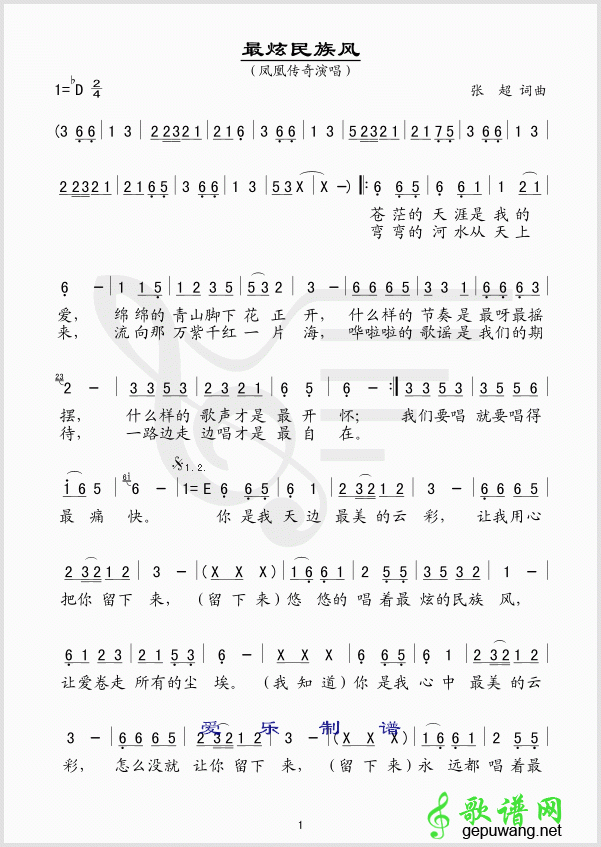 最炫民族风
(凤凰传奇演唱)
1=♭D 2/4 张 超 词曲
(3 6 6 | 1 3 | 2 2321 | 21 6 | 3 66 | 1 3 | 5 2321 | 21 75 | 3 66 | 1 3 |
2 2321 | 21 65 | 3 66 | 1 3 | 53 X | X -) |: 6 65 | 6 61 | 1 21 |
苍 茫的 天 涯是 我 的
弯 弯的 河 水从 天 上
6 - | 1 15 | 1235 | 532 | 3 - | 6665 | 3 6 | 6663 |
爱, 绵 绵的 青山脚下 花 正 开, 什么样的 节奏是 最呀最摇
来, 流 向那 万紫千红 一 片 海, 哗啦啦的 歌谣是 我们的期
23 2 - | 3353 | 2321 | 6 5 | 6 - :| 3353 | 3556 |
摆, 什么样的 歌声才是 最 开 怀; 我们要唱 就要唱得
待, 一路边走 边唱才是 最 自 在。
𝄋1.2.
i65 | 6 - | 1=E 6 65 | 2 3212 | 3 - | 6665 |
最 痛 快。 你 是我 天边 最美 的云 彩, 让我用心
2 3212 | 3 - | (X X X) | 1661 | 2 55 | 3 - |
把你 留下 来, (留 下 来) 悠 悠的 唱 着最 炫的民族 风,
6123 | 2153 | 6 - | X X X | 6 65 | 6 65 | 2 3212 |
让爱卷走 所有的尘 埃。 (我 知 道) 你 是我 心 中 最美 的云
爱 乐 制 谱
3 - | 6665 | 2 3212 | 3 - | (X X X) | 1661 | 2 55 |
彩, 怎么没就 让你 留下 来, (留 下 来) 永 远都 唱 着最
1
歌谱网
gepuwang.net